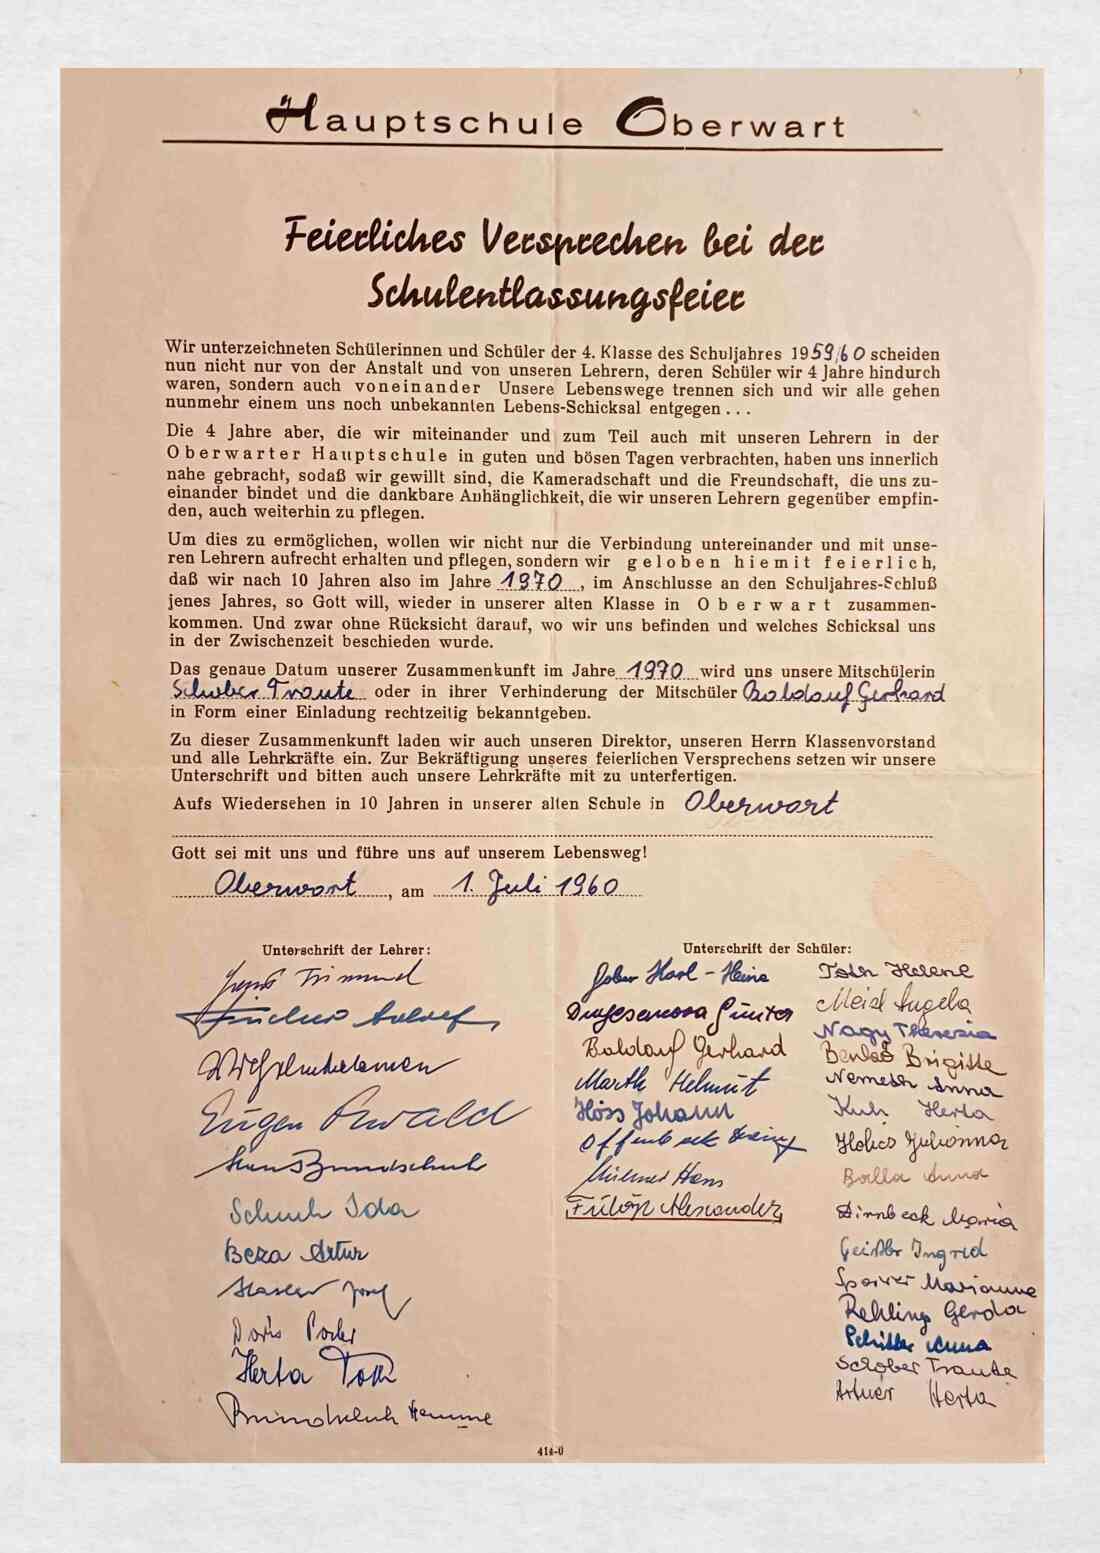 Hauptschule Oberwart
Feierliches Versprechen bei der
Schulentlassungsfeier
Wir unterzeichneten Schülerinnen und Schüler der 4. Klasse des Schuljahres 1959/60 scheiden
nun nicht nur von der Anstalt und von unseren Lehrern, deren Schüler wir 4 Jahre hindurch
waren, sondern auch voneinander Unsere Lebenswege trennen sich und wir alle gehen
nunmehr einem uns noch unbekannten Lebens-Schicksal entgegen . . .
Die 4 Jahre aber, die wir miteinander und zum Teil auch mit unseren Lehrern in der
Oberwarter Hauptschule in guten und bösen Tagen verbrachten, haben uns innerlich
nahe gebracht, sodaß wir gewillt sind, die Kameradschaft und die Freundschaft, die uns zu-
einander bindet und die dankbare Anhänglichkeit, die wir unseren Lehrern gegenüber empfin-
den, auch weiterhin zu pflegen.
Um dies zu ermöglichen, wollen wir nicht nur die Verbindung untereinander und mit unse-
ren Lehrern aufrecht erhalten und pflegen, sondern wir geloben hiemit feierlich,
daß wir nach 10 Jahren also im Jahre 1970, im Anschlusse an den Schuljahres-Schluß
jenes Jahres, so Gott will, wieder in unserer alten Klasse in Oberwart zusammen-
kommen. Und zwar ohne Rücksicht darauf, wo wir uns befinden und welches Schicksal uns
in der Zwischenzeit beschieden wurde.
Das genaue Datum unserer Zusammenkunft im Jahre 1970 wird uns unsere Mitschülerin
Schober Traute oder in ihrer Verhinderung der Mitschüler Baldauf Gerhard
in Form einer Einladung rechtzeitig bekanntgeben.
Zu dieser Zusammenkunft laden wir auch unseren Direktor, unseren Herrn Klassenvorstand
und alle Lehrkräfte ein. Zur Bekräftigung unseres feierlichen Versprechens setzen wir unsere
Unterschrift und bitten auch unsere Lehrkräfte mit zu unterfertigen.
Aufs Wiedersehen in 10 Jahren in unserer alten Schule in Oberwart
Gott sei mit uns und führe uns auf unserem Lebensweg!
Oberwart, am 1. Juli 1960
Unterschrift der Lehrer:
Eugen
Hans Bundschuh
Schuh Ida
Beza Artur
Josef
Doris
Herta Toth
Unterschrift der Schüler:
Karl-Heinz
Günter
Baldauf Gerhard
Marth Helmut
Höss Johann
Offenbeck
Hans
Fülöp Alexander
Toth Helene
Meixl Angela
Nagy Theresia
Benkö Brigitte
Nemeth Anna
Kuh Herta
Holics Julianna
Balla Anna
Dirnbeck Maria
Geißler Ingrid
Marianne
Rehling Gerda
Anna
Schober Traute
Artner Herta
414-Ü